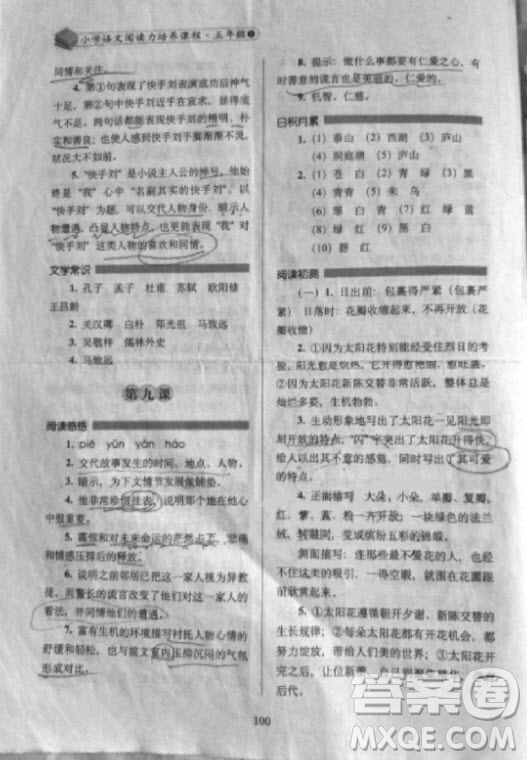 小学语文阅读力培养课程·五年级
同情和关注。
4. 第①句表现了快手刘表演成功后神气
十足,第②句中快手刘近于在哀求,显得
底气不足,两句话都表现快手刘的精明、朴
实和善良;也暗示快手刘手脚渐渐不灵、
状况大不如前。
5. “快手刘”是小说主人公的绰号,他
始终是“我”心中“名副其实的快手刘”
以“快手刘”为题,可以交代人物身份、暗示人
物遭遇、凸显人物特点,也更能表现“我”对
“快手刘”这类人物的喜欢和同情。
文学常识
1. 孔子 孟子 杜甫 苏轼 欧阳修
王昌龄
2. 关汉卿 白朴 郑光祖 马致远
3. 吴敬梓 儒林外史
4. 马致远
第九课
阅读感悟
1. piē yūn yán háo
2. 交代故事发生的时间、地点、人物。
3. 暗示,为下文情节发展做铺垫。
4. 他非常珍惜挂表,
很重要。
5. 震惊和对未来命运的茫然占了,悲痛
和情感压抑后的释放。
6. 说明之前邻居都已把这一家人移开救
走,而警长的谎言改变了他们对这一家人的
看法,并同情他们的遭遇。
7. 富有生机的环境描写衬托人物心情的
舒缓和轻松,也与前文室内压抑沉闷的气氛
形成对比。
8. 提示:做人要有仁爱之心,有
时善意的谎言也是美丽的、仁慈的。
9. 机智、仁慈。
日积月累
1. (1) 泰山 (2) 西湖 (3) 庐山
(4) 洞庭湖 (5) 庐山
2. (1) 苍 白 (2) 青 绿 (3) 黑
(4) 青青 (5) 朱 乌
(6) 翠 白 青 (7) 红 绿 蓝
(8) 绿 红 (9) 黑 白
(10) 碧 红
阅读初测
(一) 1. 日出前:包裹得严紧(包裹严
紧) 日落时:花瓣收缩起来,不再开放(花
瓣收缩)
2. ①因为太阳花能经受住烈日的考
验,阳光愈是炽热,它开得愈热情、愈兴盛。
②因为太阳花新陈交替非常活跃,总是
灿烂多姿、生机勃勃。
3. 生动形象地写出了太阳花一见阳光即
刻开放的特点,“闪”字突出了太阳花开得快,
给人以出其不意的感觉,同时写出了其可爱
的特点。
4. 正面描写 大朵,小朵,单瓣,复瓣,
红、黄、蓝、紫、粉,一块绿色的法兰
绒,转瞬间,变成缤纷五彩的锦缎。
侧面描写:连那些最不爱花的人,也
对这美的吸引,一得空暇,就围在花圃前
欣赏起来。
5. ①太阳花遵循朝开夕谢、新陈交替的
生长规律,才有了太阳花的开花机会,
展现自己和世界的丰富。②太阳花开
完之后,让位新蕾、自
后代。
100
答案圈
MXQE.COM